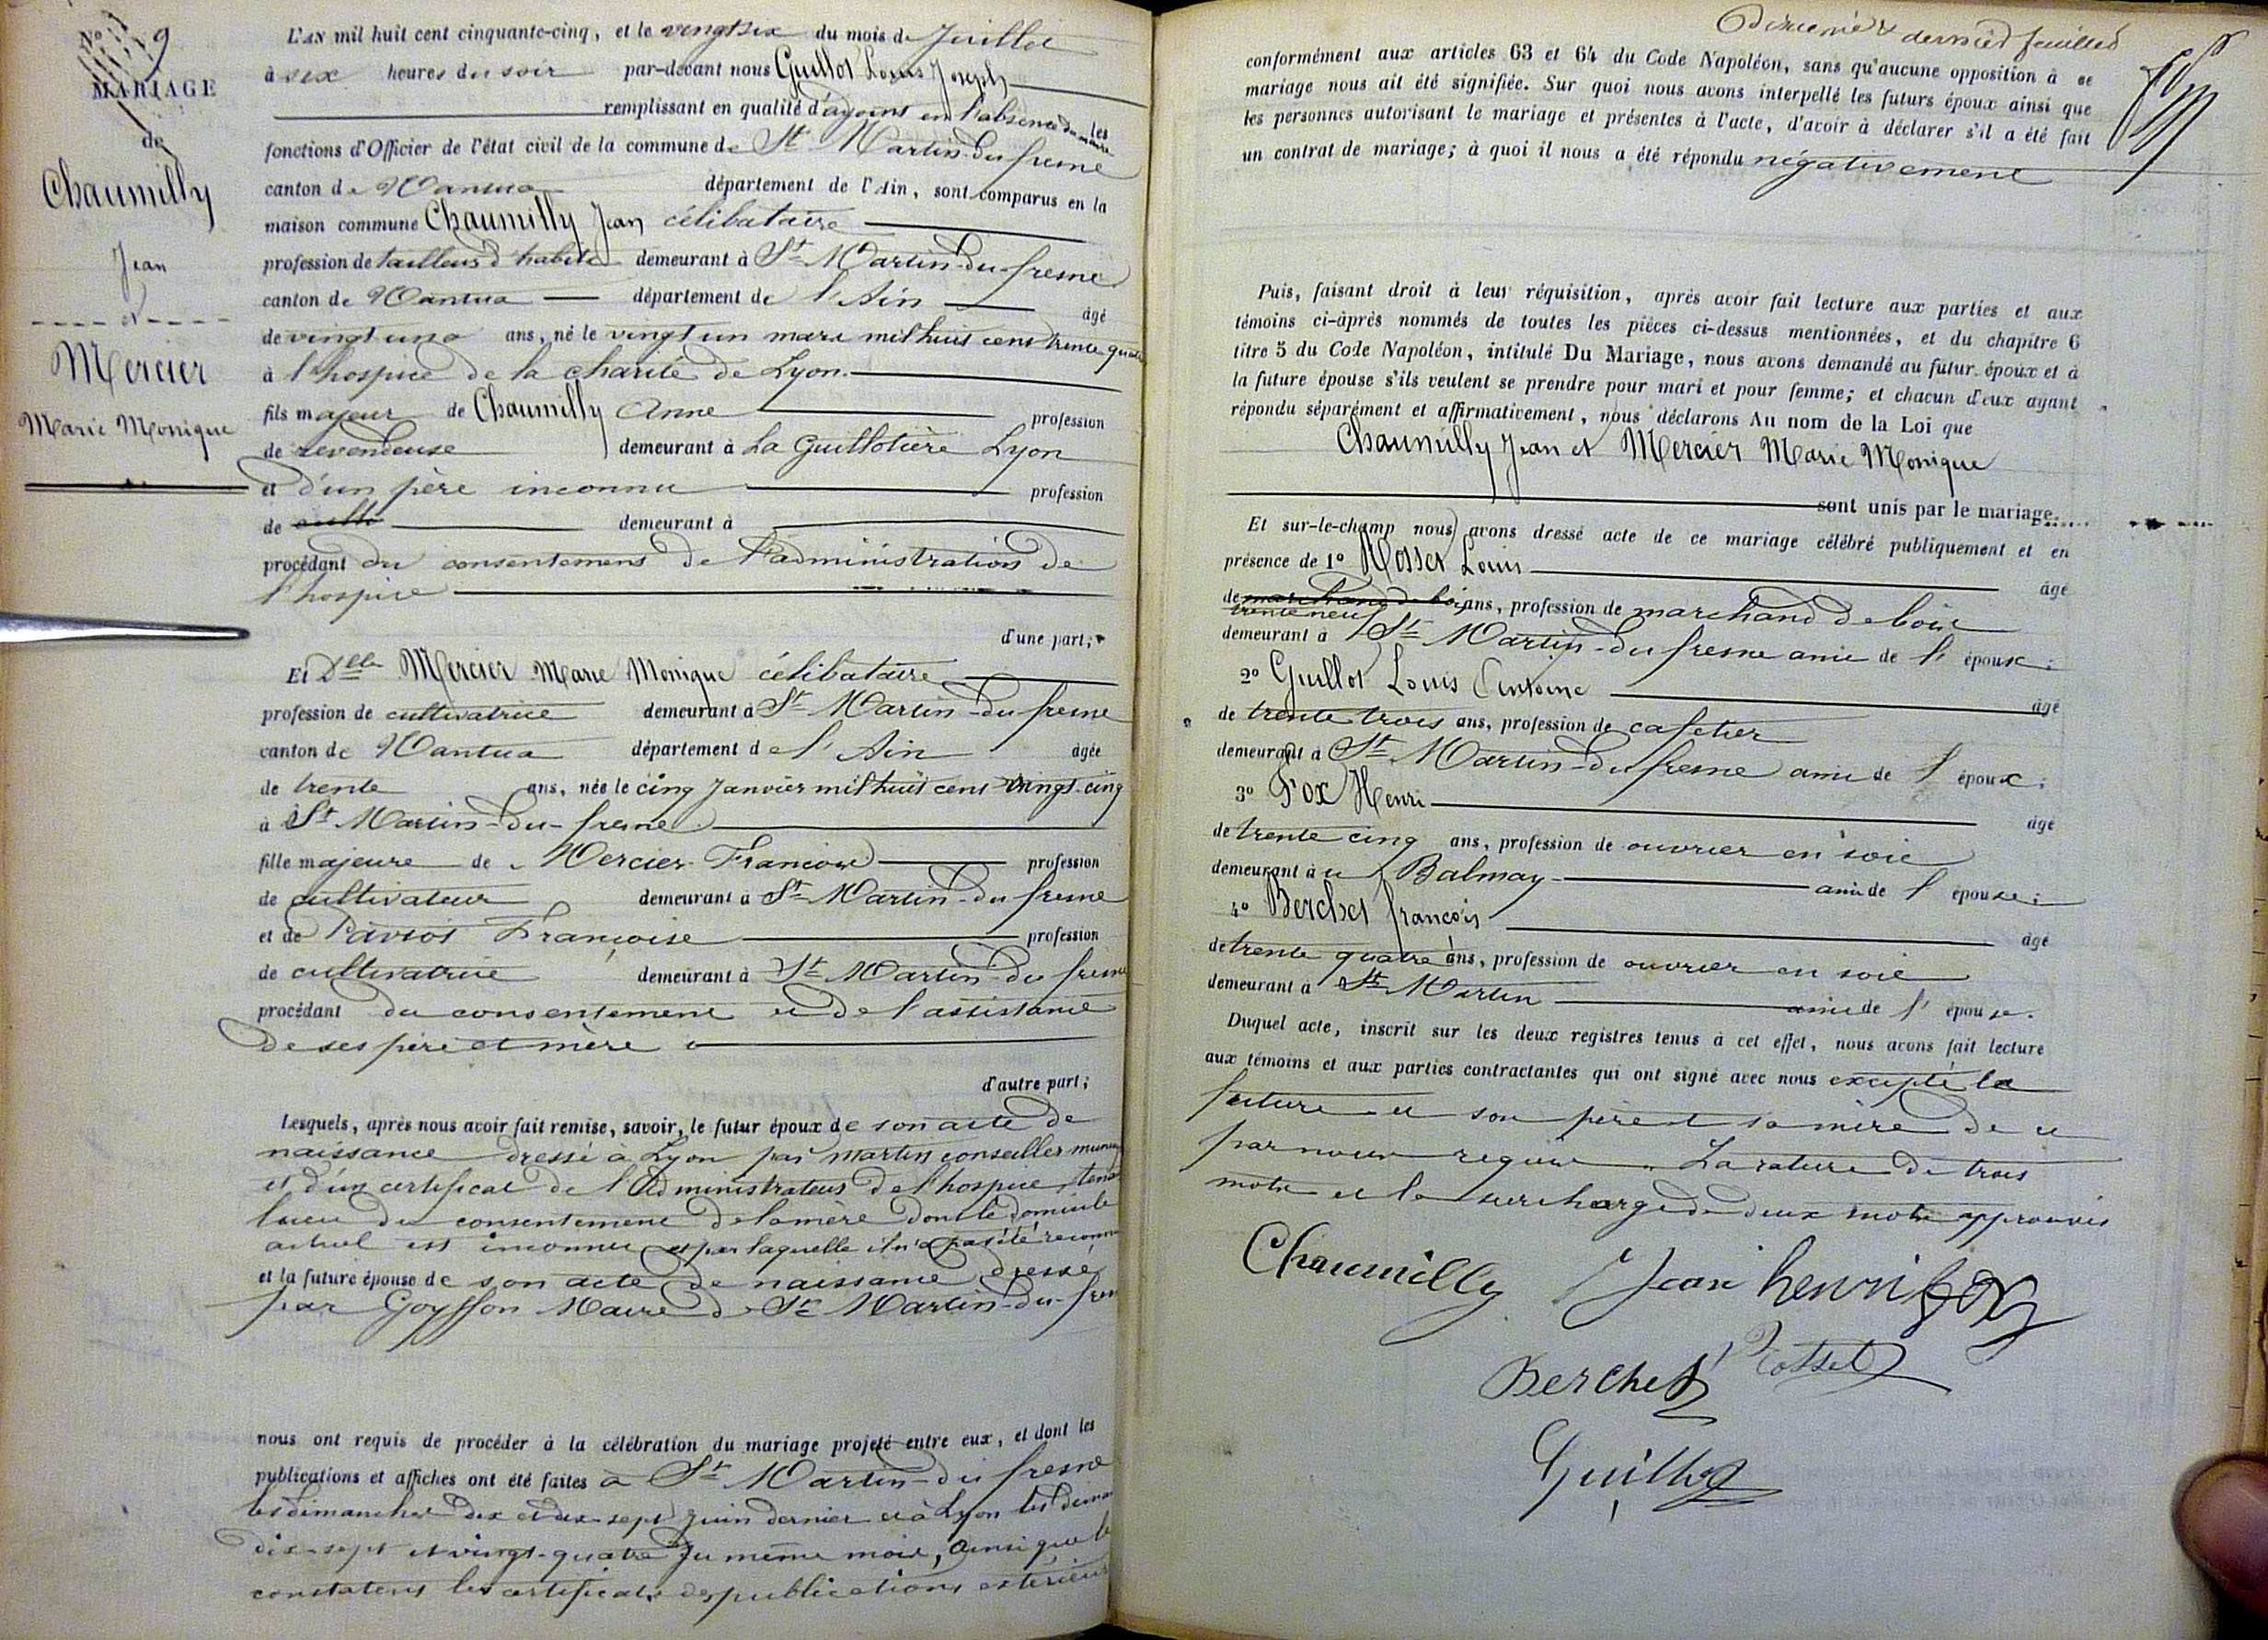 No 9
MARIAGE
de
Chaumilly
Jean
et
Mercier
Marie Monique
L'AN mil huit cent cinquante-cinq, et le vingt six du mois de Juillet
à six heures du soir par-devant nous Guillot Louis Joseph
remplissant en qualité d'adjoint en l'absence du maire les
fonctions d'Officier de l'état civil de la commune de St Martin-du-fresne
canton de Nantua département de l'Ain, sont comparus en la
maison commune Chaumilly Jean célibataire
profession de tailleur d'habits demeurant à St Martin-du-fresne
canton de Nantua département de l'Ain âgé
de vingt un ans, né le vingt un mars mil huit cent trente quatre
à l'hospice de la charité de Lyon.
fils majeur de Chaumilly Anne profession
de revendeuse demeurant à La Guillotière Lyon
et d'un père inconnu profession
de demeurant à
procédant du consentement de l'administration de
l'hospice
d'une part;
Et Dlle Mercier Marie Monique célibataire
profession de cultivatrice demeurant à St Martin-du-fresne
canton de Nantua département de l'Ain âgée
de trente ans, née le cinq Janvier mil huit cent vingt-cinq
à St Martin-du-fresne
fille majeure de Mercier François profession
de cultivateur demeurant à St Martin-du-fresne
et de Françoise profession
de cultivatrice demeurant à St Martin-du fresne
procédant du consentement et de l'assistance
de ses père et mère
d'autre part;
Lesquels, après nous avoir fait remise, savoir, le futur époux de son acte de
naissance dressé à Lyon par Martin conseiller
et d'un certificat de l'Administrateur de l'hospice, tenant
lieu du consentement de la mère dont le domicile
actuel est inconnu et par laquelle il n'a pas été reconnu
et la future épouse de son acte de naissance dressé
par Goyffon Maire de St Martin-du-fresne
nous ont requis de procéder à la célébration du mariage projeté entre eux, et dont les
publications et affiches ont été faites à St Martin-du fresne
les dimanches dix et dix-sept juin dernier et à Lyon les
dix-sept et vingt-quatre du même mois, ainsi que le
constatent les certificats des publications
dernier feuillet
conformément aux articles 63 et 64 du Code Napoléon, sans qu'aucune opposition à ce
mariage nous ait été signifiée. Sur quoi nous avons interpellé les futurs époux ainsi que
les personnes autorisant le mariage et présentes à l'acte, d'avoir à déclarer s'il a été fait
un contrat de mariage; à quoi il nous a été répondu négativement
Puis, faisant droit à leur réquisition, après avoir fait lecture aux parties et aux
témoins ci-après nommés de toutes les pièces ci-dessus mentionnées, et du chapitre 6
titre 5 du Code Napoléon, intitulé Du Mariage, nous avons demandé au futur époux et à
la future épouse s'ils veulent se prendre pour mari et pour femme; et chacun d'eux ayant
répondu séparément et affirmativement, nous déclarons Au nom de la Loi que
Chaumilly Jean et Mercier Marie Monique
sont unis par le mariage.
Et sur-le-champ nous avons dressé acte de ce mariage célébré publiquement et en
présence de 1° Rosset Louis âgé
de marchand de bois ans, profession de marchand de bois
trente neuf
demeurant à St Martin-du fresne ami de l'époux;
2° Guillot Louis Antoine âgé
de trente trois ans, profession de cafetier
demeurant à St Martin-du fresne ami de l'époux;
3° Fox Henri âgé
de trente cinq ans, profession de ouvrier en soie
demeurant à Balmay ami de l'épouse;
4° Berchet françois âgé
de trente quatre ans, profession de ouvrier en soie
demeurant à St Martin ami de l'épouse.
Duquel acte, inscrit sur les deux registres tenus à cet effet, nous avons fait lecture
aux témoins et aux parties contractantes qui ont signé avec nous excepté la
future et son père et sa mère de ce
par nous requis. La rature de trois
mots et la surcharge de deux mots approuvés
Chaumilly Jean henri fox
Berchet Rosset
Guillot